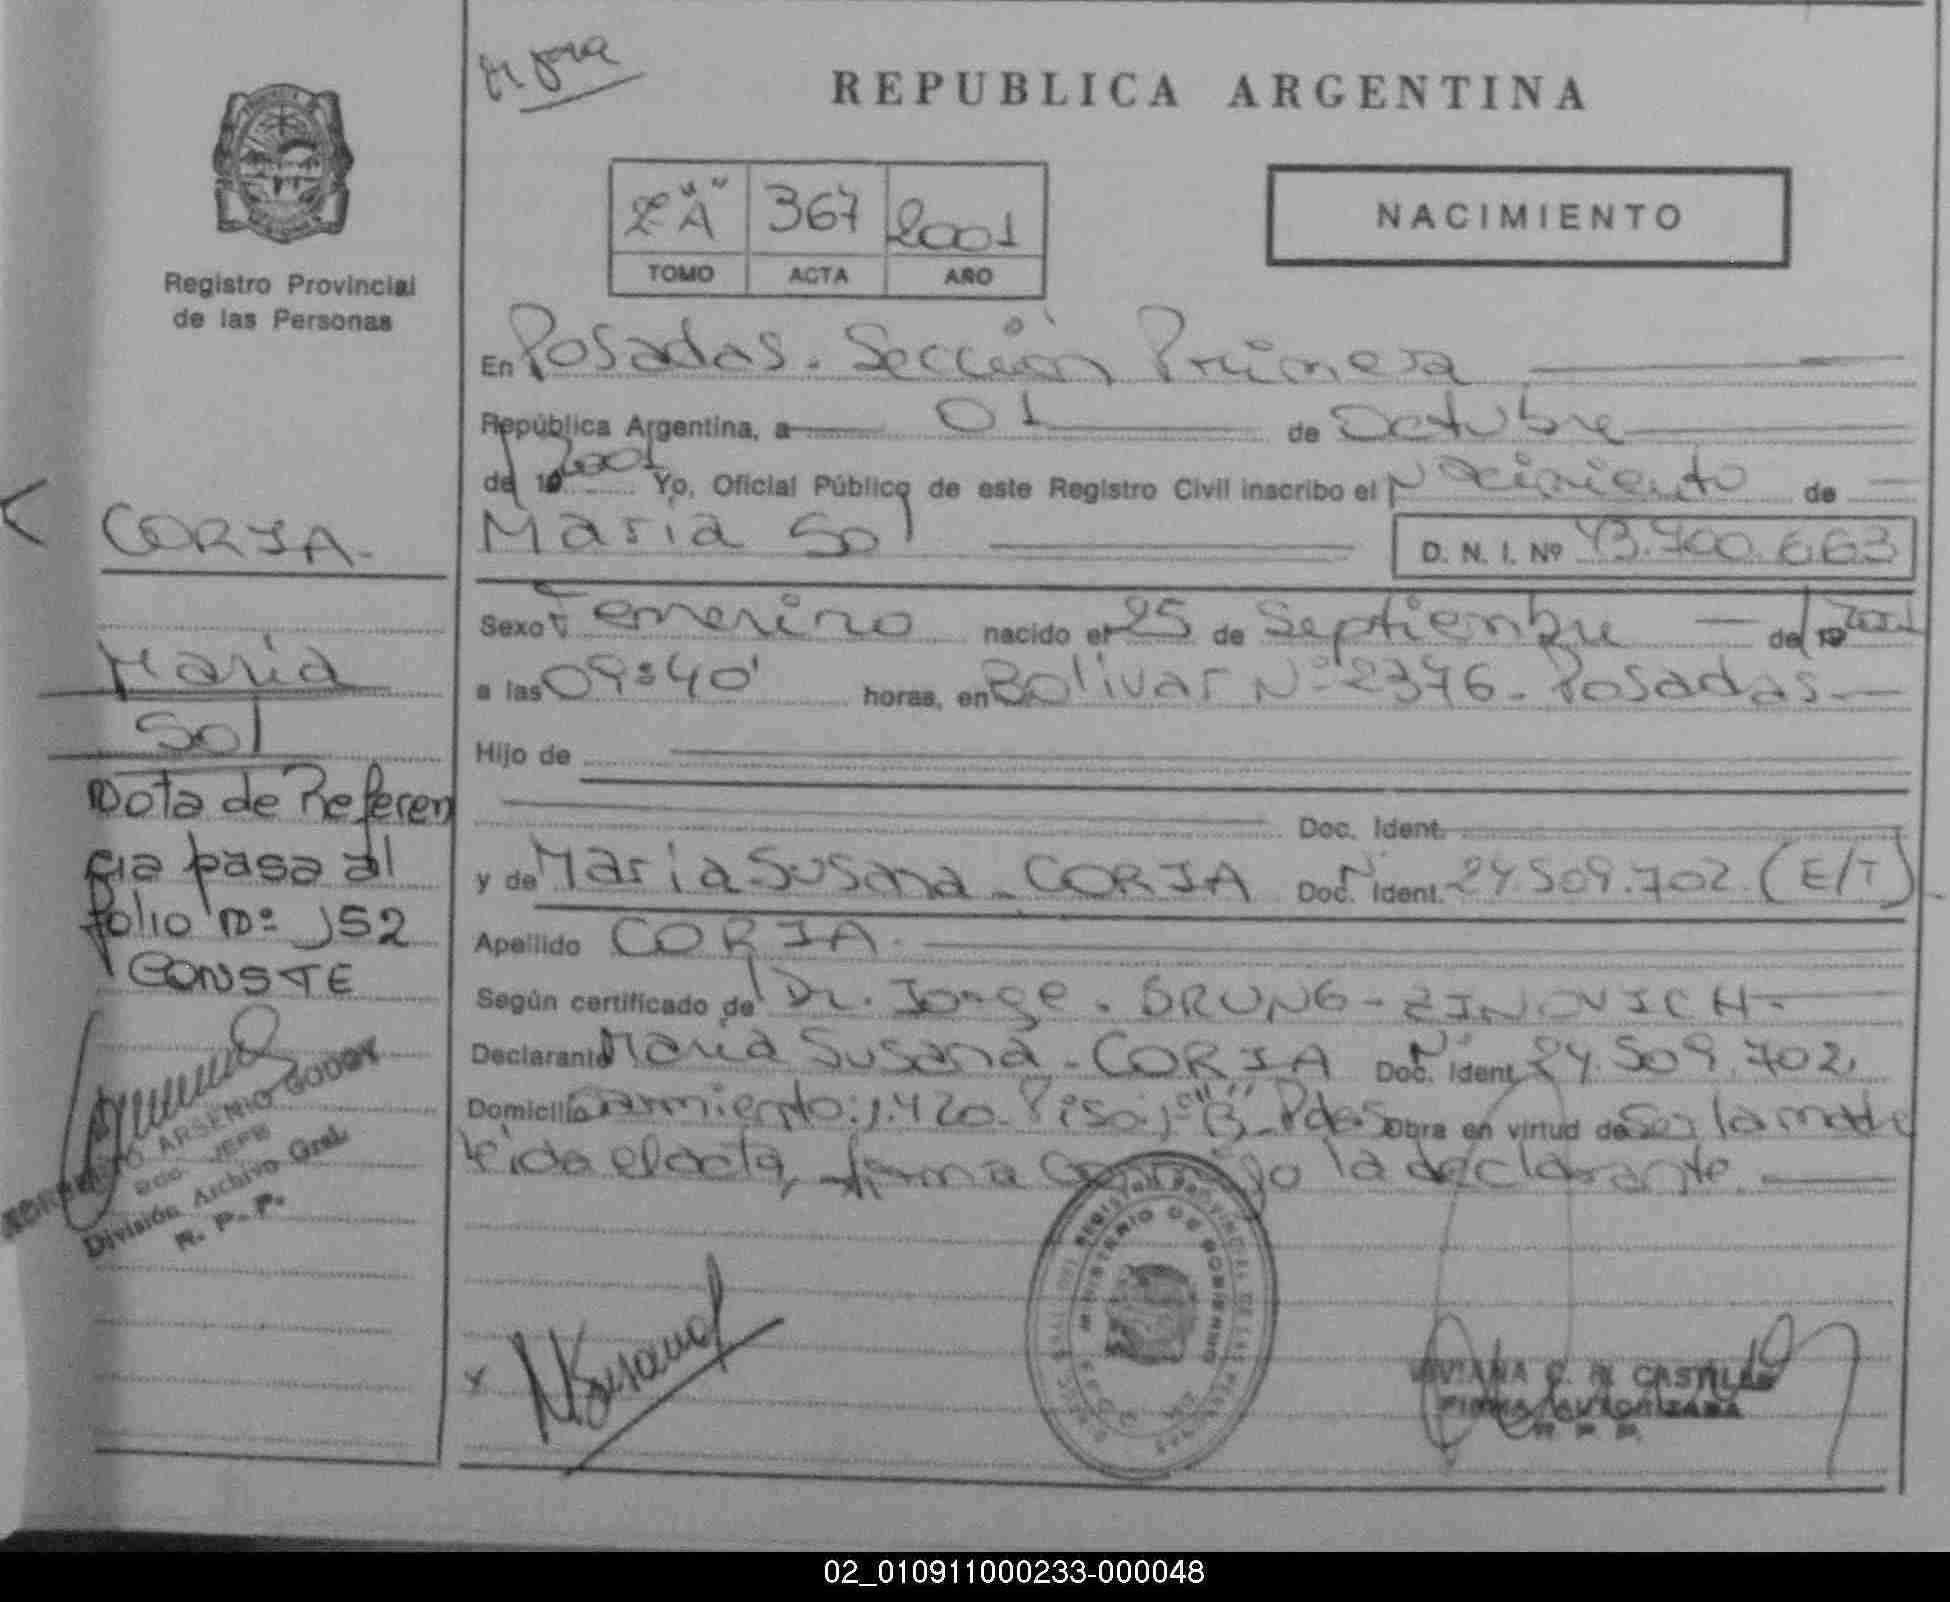 REPUBLICA ARGENTINA
2º "A" 367 2001
TOMO ACTA AÑO
NACIMIENTO
Registro Provincial
de las Personas
En Posadas. Sección Primera
República Argentina, a 01 de Octubre
de 19 2001 Yo, Oficial Público de este Registro Civil inscribo el Nacimiento de
Maria Sol D. N. I. Nº 43.700.663
Sexo Femenino nacido el 25 de Septiembre de 19 2001
a las 09:40' horas, en Bolivar Nº 2376 - Posadas
Hijo de
Doc. Ident.
y de Maria Susana - CORIA Doc. Ident. Nº 24.509.702 (E/T)
Apellido CORIA.
Según certificado de Dr. Jorge. BRUNO - ZINOVICH -
Declarante Maria Susana - CORIA Doc. Ident. Nº 24.509.702
Domicilio Sarmiento: 1.420 - Piso: 1º "B" - Pdas Obra en virtud de Ser la madre
leida el acta, firma conmigo la declarante
CORIA.
Maria
Sol
Nota de Referen
cia pasa al
folio Nº 152
CONSTE
ARSENIO GODOY
JEFE
División Archivo Gral.
R. P. P.
MINISTERIO DE GOBIERNO
VIVIANA C. CASTILLO
FIRMA AUTORIZADA
R. P. P.
02_010911000233-000048